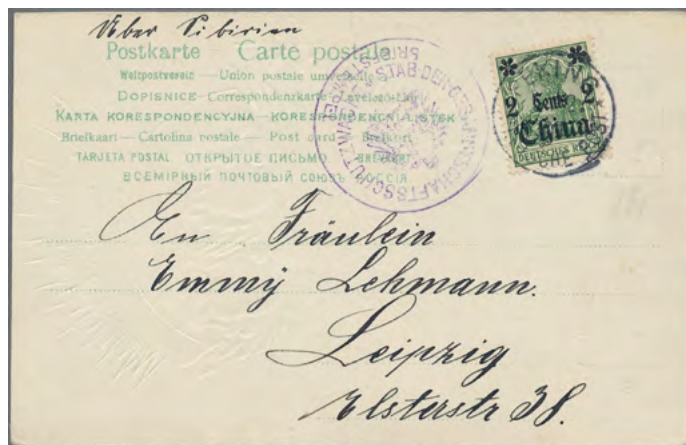 Über Sibirien
Postkarte Carte postale
Weltpostverein — Union postale universelle
DOPISNICE — Correspondenzkarte — Levelező-Lap
KARTA KORESPONDENCYJNA — KORESPONDENČNÍ LÍSTEK
Briefkaart — Cartolina postale — Post card — Brefkort
TARJETA POSTAL ОТКРЫТОЕ ПИСЬМО — BREVKORT
ВСЕМІРНЫЙ ПОЧТОВЫЙ СОЮЗЪ РОССІЯ
STAB DER GESANDTSCHAFTSSCHUTZWACHE
2 Cents 2
China
DEUTSCHES REICH
PEKING
An Fräulein
Emmy Lehmann.
Leipzig
Elsterstr 38.